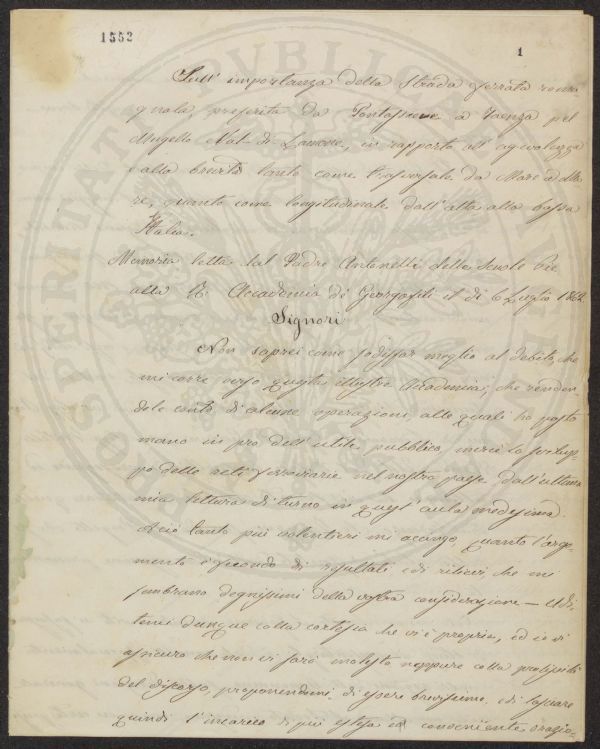 1552
1
Sull' importanza della Strada ferrata roma-
gnola, preferita da Pontassieve a Faenza pel
Mugello Val-di-Lamone, in rapporto all' agevolezza
e alla brevità tanto come trasversale da Mare a Ma-
re, quanto come longitudinale dall' alta alla bassa
Italia.
Memoria letta dal Padre Antonelli delle Scuole Pie
alla R. Accademia dei Georgofili il dì 6 Luglio 1862
Signori
Non saprei come sodisfar meglio al debito, che
mi corre verso questa illustre Accademia, che renden-
dole conto di alcune operazioni, alle quali ho posto
mano in pro dell' utile pubblico, mercè lo svilup-
po delle reti ferroviarie nel nostro paese, dall' ultima
mia lettura di turno in quest' aula medesima.
A ciò tanto più volentieri mi accingo, quanto l' argo-
mento è fecondo di resultati e di rilievi, che mi
sembrano degnissimi della vostra considerazione — Udi-
temi dunque colla cortesia che vi è propria, ed io vi
assicuro che non vi sarò molesto neppure colla prolissità
del discorso, proponendomi di essere brevissimo, e di lasciare
quindi l' incarico di più estesa e conveniente orazio-
PVBLICAE
PROSPERITATI